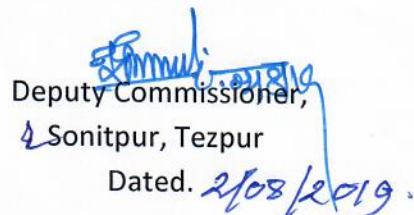 Deputy Commissioner,
Sonitpur, Tezpur
Dated. 2/08/2019.